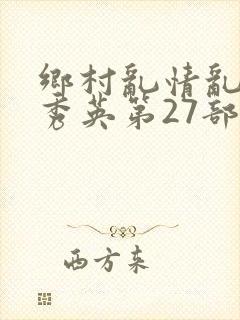 鄉村亂情亂
秀英第27部
西方来